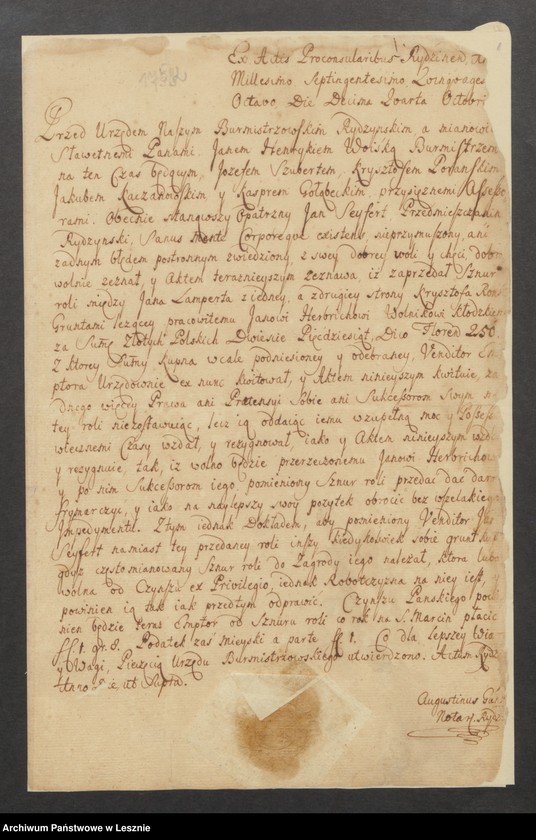 Ex Actis Proconsularibus Rydzinen. Ao
Millesimo Septingentesimo Quinquages
Octavo, Die Decima Quarta Octobri
Przed Urzędem Naszym Burmistrzowskim Rydzynskim, a mianowi
Sławetnemi Panami, Janem Henrykiem Wolską Burmistrzem
na ten Czas będącym, Jozefem Szubertem, Krysztofem
Jakubem Kaczanowskim y Kasprem Gołąbeckim, przysięznemi Assesso
rami. Obecnie stanąwszy Opatrzny Jan Seyfert Przedmieszczanin
Rydzynski, Sanus Mente Corporeque existens, nieprzymuszony, ani
zadnym błędem postronnym zwiedziony, z swey dobrey woli y chęci, dobro
wolnie zeznał, y Aktem teraznieyszym zeznawa, iz zaprzedał Sznur
roli między Jana Lamperta z iedney, a zdrugiey strony Krysztofa
Gruntami lezący pracowitemu Janowi Herbrichowi Wolnikowi
za Summę Złotych Polskich Dwiescie Pięcdziesiąt, Dico Floren 250.
Z ktorey Summy Kupna wcale podniesioney y odebraney, Venditor Em
ptora Urzędownie ex nunc kwitował, y Aktem ninieyszym kwituie, za
dnego więcey Prawa ani Pretensyi Sobie ani Sukcessorom Swym na
tey roli niezostawuiąc, lecz ią oddaiąc iemu wzupełną moc y Possess
wiecznemi Czasy wzdał, y rezygnował, iako y Aktem ninieyszym wzda
y rezygnuie, tak, iz wolno będzie przerzeczonemu Janowi Herbrichow
y po nim Sukcessorom iego, pomieniony Sznur roli przedac dac daro
frymarczyc, y iako na naylepszy swoy pozytek obrocic bez wszelakiego
Impedymentu. Ztym iednak Dokładem, aby pomieniony Venditor Jan
Seyfert namiast tey przedaney roli inszy kiedykolwiek sobie grunt
gdyz częstomianowany Sznur roli do Zagrody iego nalezał, ktora lubo
wolna od Czynszu ex Privilegio, iednak Robotczyzna na niey iest,
powinien ią tak iak przedtym odprawic. Czynszu Panskiego powi
nien będzie teraz Emptor od Sznuru roli co rok na S. Marcin płacic
ff 1. gr. 8. Podatek zaś mieyski a parte ff 1. Co dla lepszey Wia
y Wagi, Pieczęcią Urzędu Burmistrzowskiego utwierdzono. Actum Rydz
Anno Die, ut Supra.
Augustinus
Notar. Rydz
Archiwum Państwowe w Lesznie